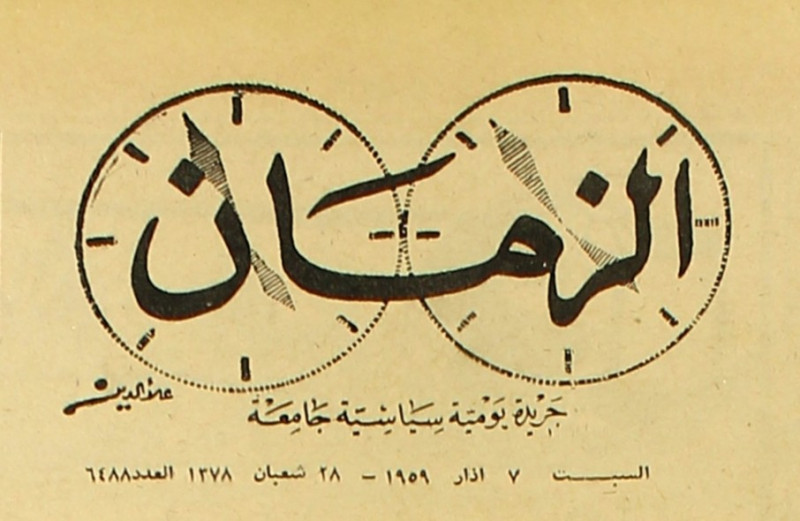 الزمان
علاءالدين
جريدة يومية سياسية جامعة
السبت ٧ اذار ١٩٥٩ - ٢٨ شعبان ١٣٧٨ العدد ٦٤٨٨